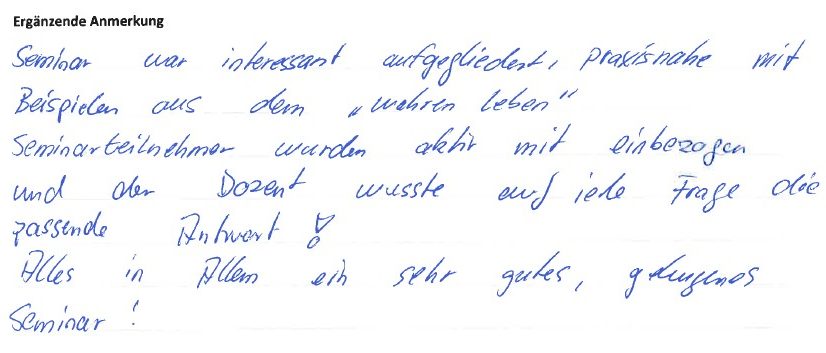 Ergänzende Anmerkung
Seminar war interessant aufgegliedert, praxisnahe mit
Beispielen aus dem „wahren Leben"
Seminarteilnehmer wurden aktiv mit einbezogen
und der Dozent wusste auf jede Frage die
passende Antwort!
Alles in Allem ein sehr gutes, gelungenes
Seminar!